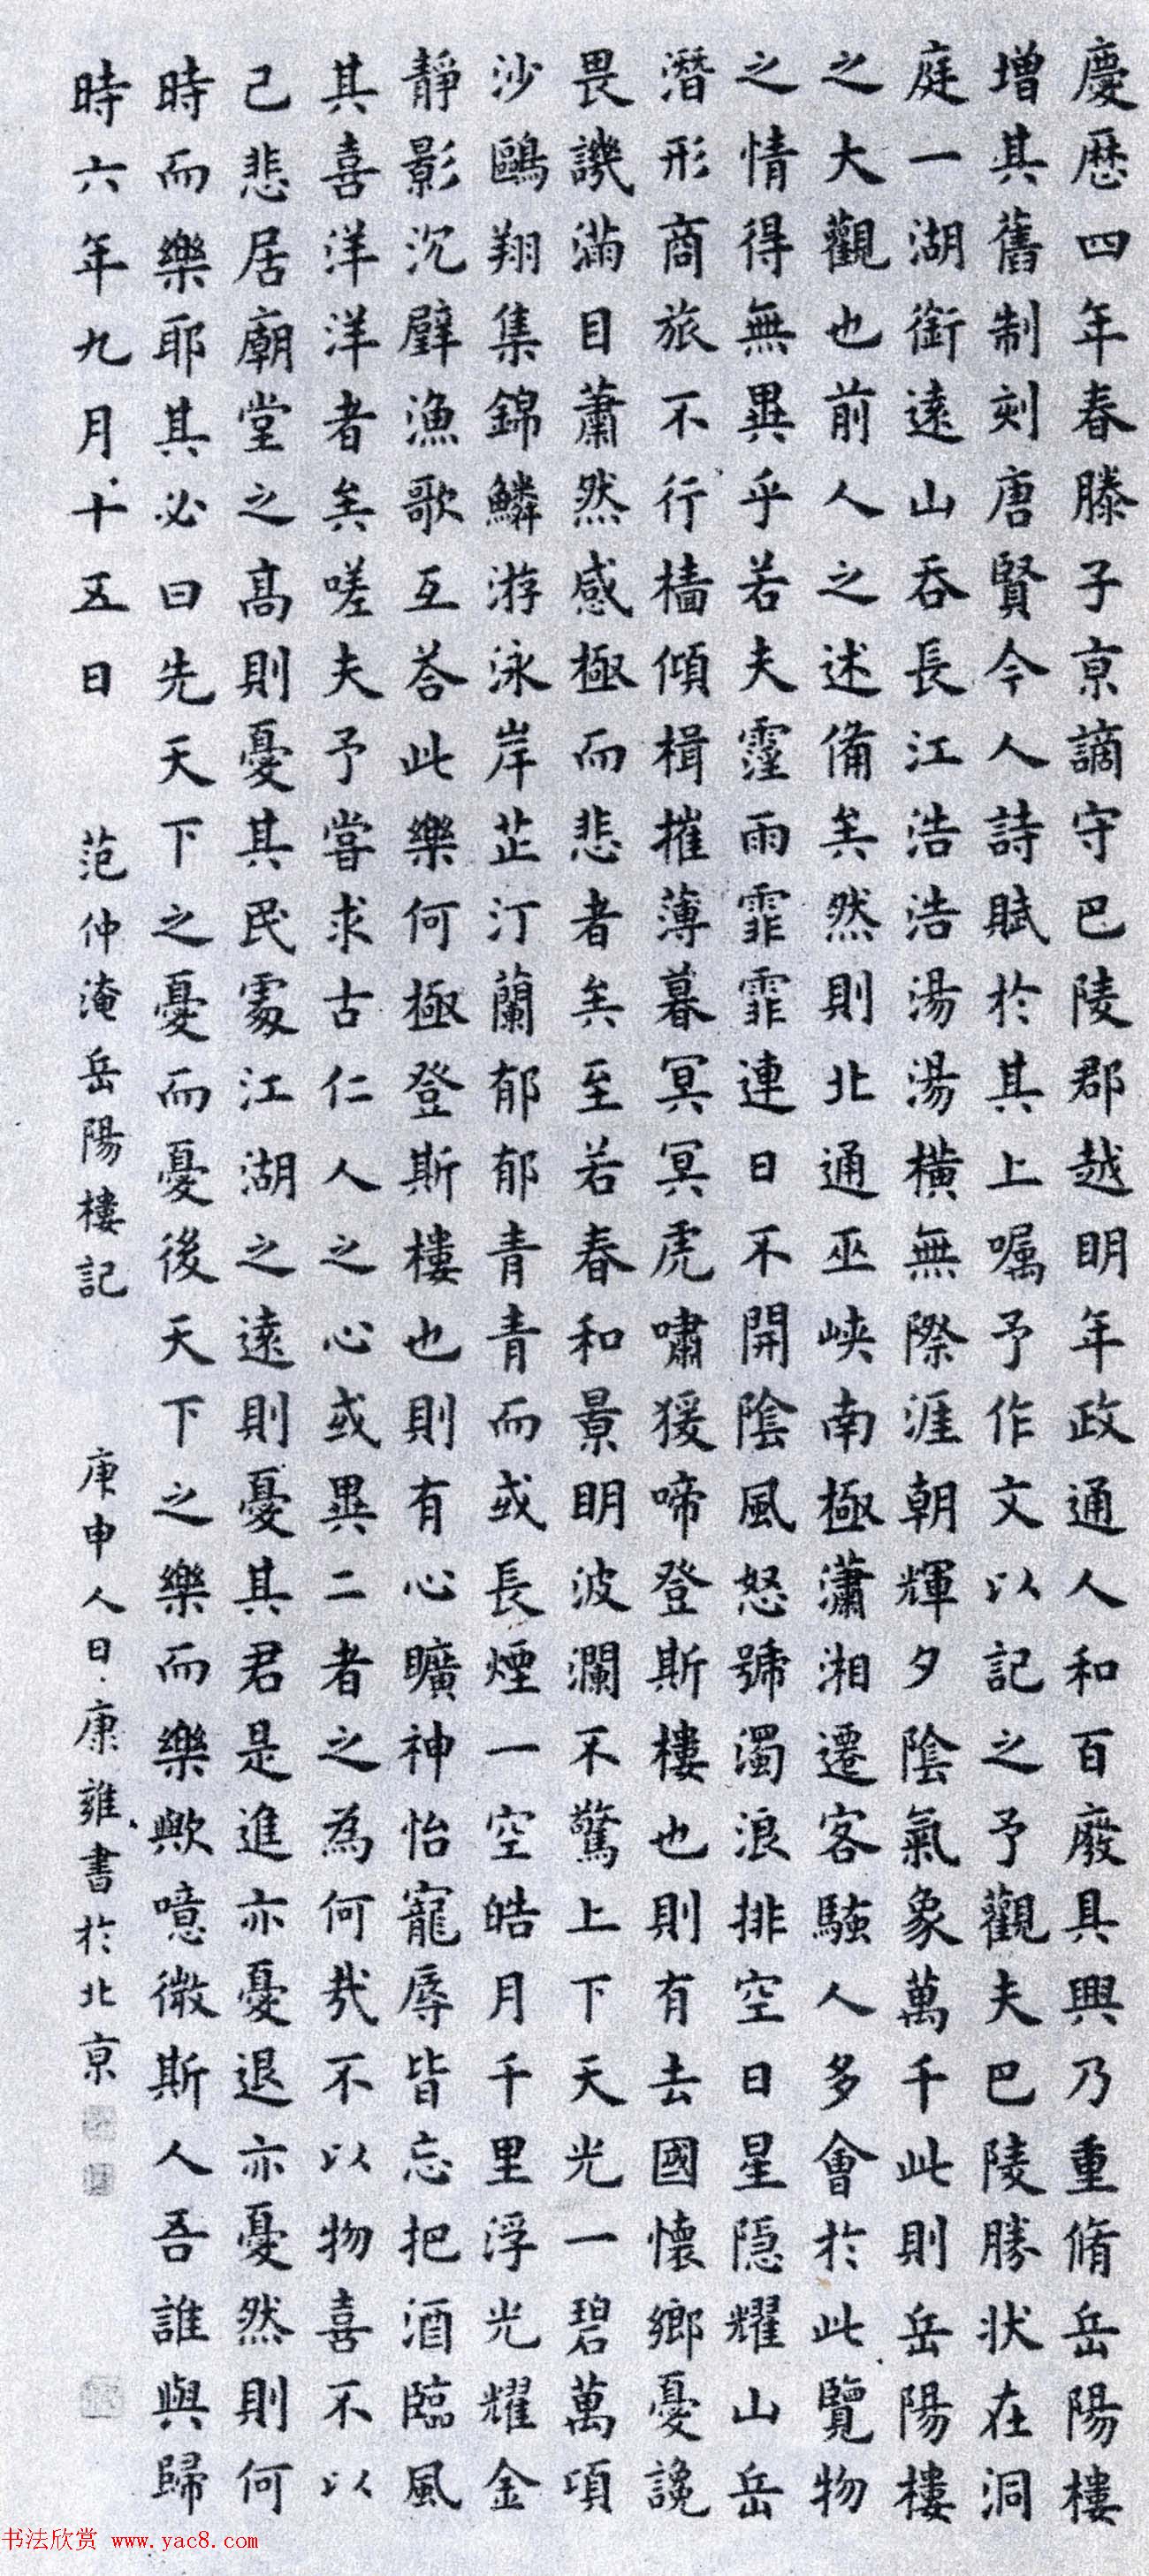 慶歷四年春滕子京謫守巴陵郡越明年政通人和百廢具興乃重脩岳陽樓
增其舊制刻唐賢今人詩賦於其上嘱予作文以記之予觀夫巴陵勝狀在洞
庭一湖銜遠山吞長江浩浩湯湯橫無際涯朝輝夕陰氣象萬千此則岳陽樓
之大觀也前人之述備矣然則北通巫峽南極瀟湘遷客騷人多會於此覽物
之情得無異乎若夫霪雨霏霏連日不開陰風怒號濁浪排空日星隱耀山岳
潛形商旅不行檣傾楫摧薄暮冥冥虎嘯猨啼登斯樓也則有去國懷鄉憂讒
畏譏滿目蕭然感極而悲者矣至若春和景明波瀾不驚上下天光一碧萬頃
沙鷗翔集錦鱗游泳岸芷汀蘭郁郁青青而或長煙一空皓月千里浮光耀金
靜影沉璧漁歌互荅此樂何極登斯樓也則有心曠神怡寵辱皆忘把酒臨風
其喜洋洋者矣嗟夫予嘗求古仁人之心或異二者之為何哉不以物喜不以
己悲居廟堂之高則憂其民處江湖之遠則憂其君是進亦憂退亦憂然則何
時而樂耶其必曰先天下之憂而憂後天下之樂而樂歟噫微斯人吾誰與歸
時六年九月十五日 范仲淹岳陽樓記 庚申人日康雍書於北京
书法欣赏 www.yac8.com